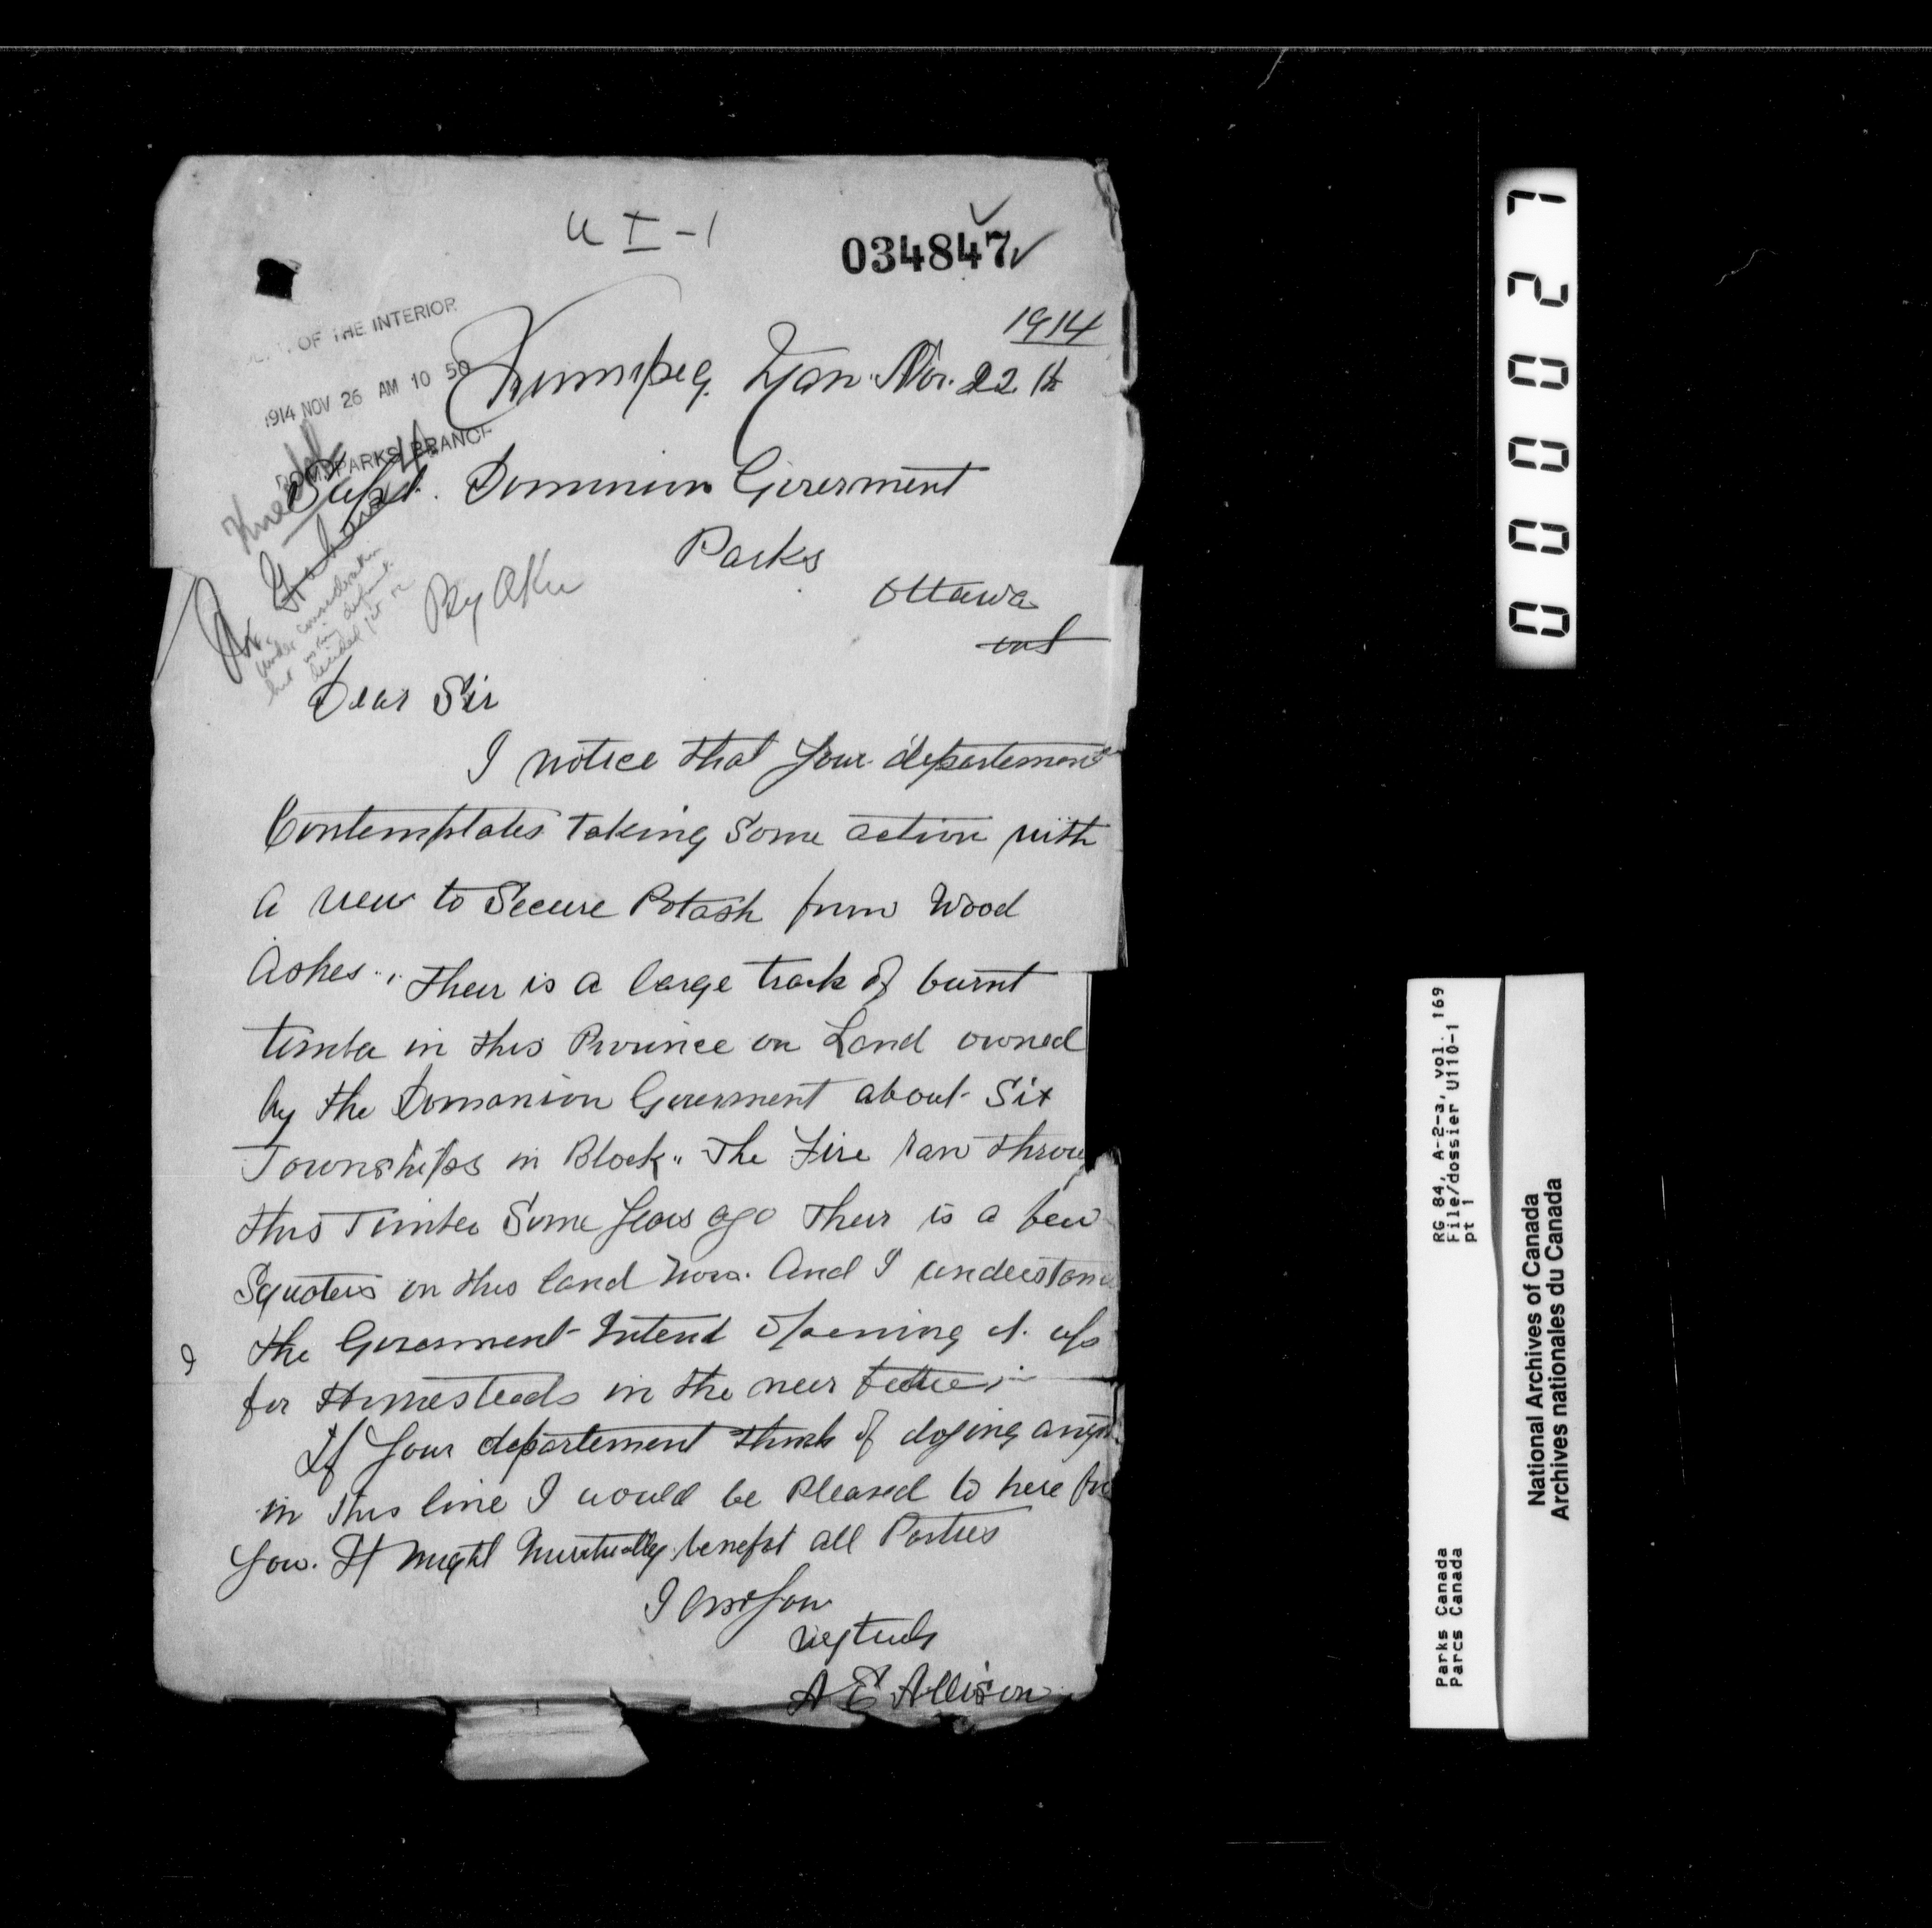 U I-1
034847
DEPT. OF THE INTERIOR
1914 NOV 26 AM 10 50
DOM. PARKS BRANCH
1914
Winnipeg. Man. Nov. 22th
Supt. Dominion Goverment
Parks
Ottawa
ont
Knecht
Mr. Graham
under consideration
but nothing definite
decided yet
Dear Sir
I notice that your departement
Contemplates taking Some action with
a view to Secure Potash from Wood
Ashes. Their is a large track of burnt
timber in this Province on Land owned
by the Domanion Goverment about Six
Townships in Block. The Fire ran throu
this Timber Some years ago Their is a few
Squoters on this land now. And I understand
the Goverment Intend Opening it up
for Homesteads in the neer futtie
If your departement think of doying anyth
in this line I would be Pleased to here fro
you. It might Muetually benefit all Parties
I am your
very truly
A E Allison
0 0 0 0 2 7
RG 84, A-2-a, vol. 169
File/dossier U110-1
pt 1
Parks Canada
Parcs Canada
National Archives of Canada
Archives nationales du Canada